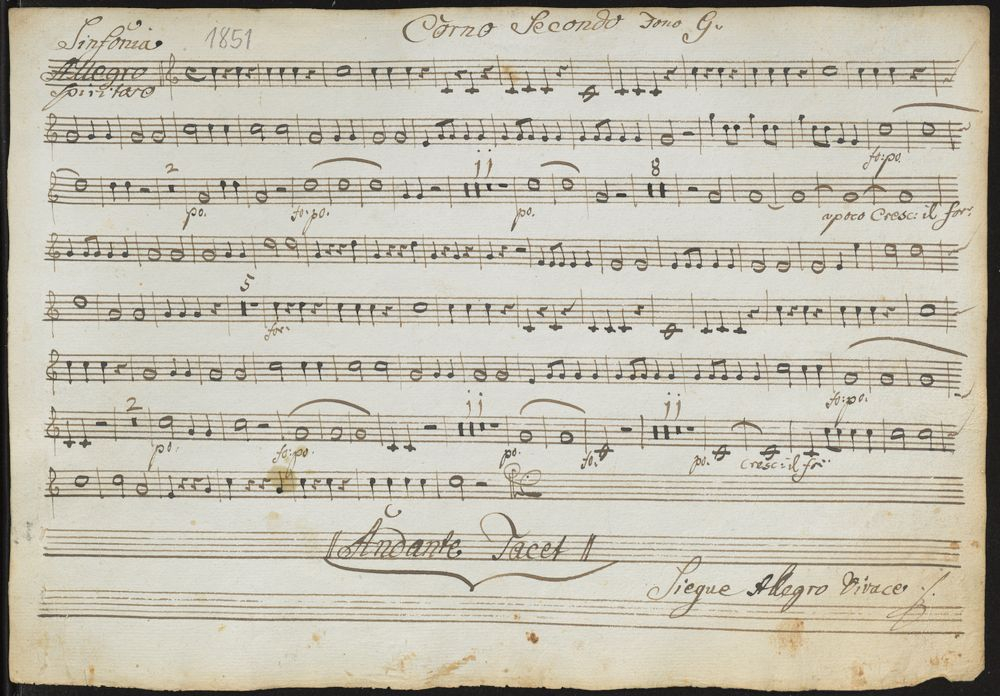 Corno Secondo Tono G.
Sinfonia 1851
Allegro
Spiritoso
fo: po.
2 11 8
po. fo: po. po. a poco Cresc: il for:
5
for.
fo: po.
2 11 11
po. fo: po. po. fo. po. Cresc: il for:
Andante Tacet
Siegue Allegro Vivace